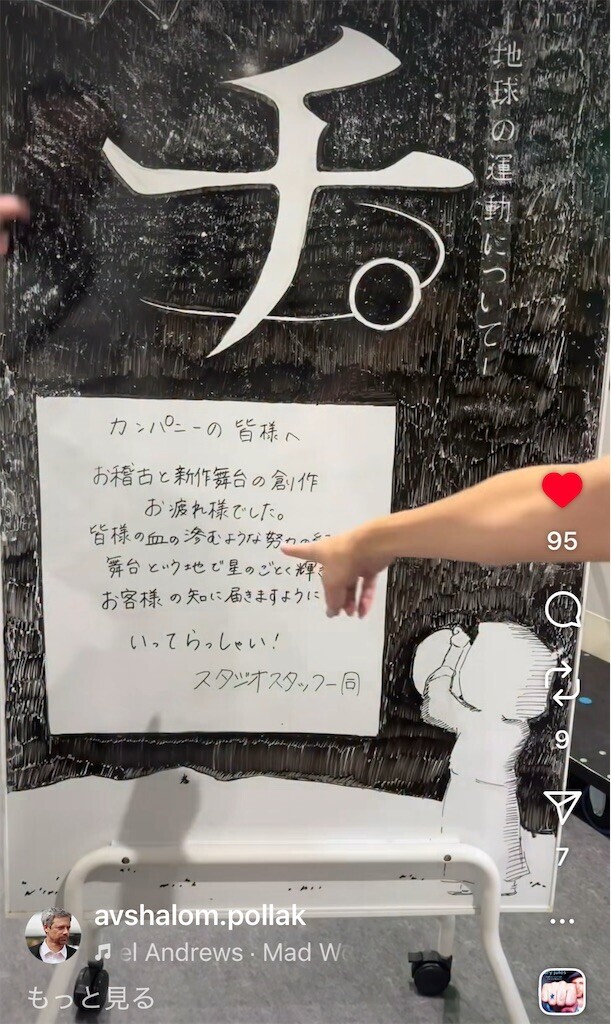 チ。
―地球の運動について―
カンパニーの皆様へ
お稽古と新作舞台の創作
お疲れ様でした。
皆様の血の滲むような努力の
舞台という地で星のごとく輝き
お客様の知に届きますように
いってらっしゃい!
スタジオスタッフ一同
95
9
7
avshalom.pollak
el Andrews · Mad Wo
もっと見る